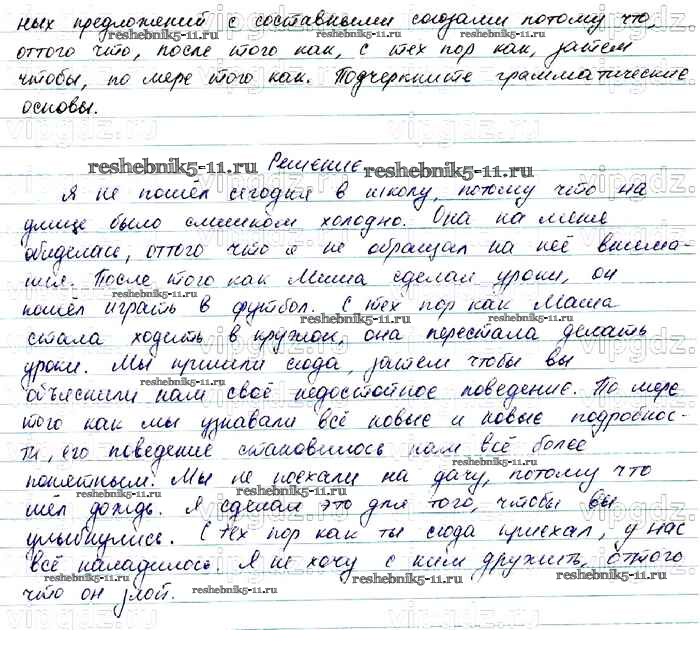 ных предложений с составными союзами потому что,
оттого что, после того как, с тех пор как, затем
чтобы, по мере того как. Подчеркните грамматические
основы.
reshebnik5-11.ru
Решение
Я не пошёл сегодня в школу, потому что на
улице было слишком холодно. Она на меня
обиделась, оттого что я не обращал на неё внима-
ния. После того как Миша сделал уроки, он
пошёл играть в футбол. С тех пор как Маша
стала ходить в кружок, она перестала делать
уроки. Мы пришли сюда, затем чтобы вы
объяснили нам своё недостойное поведение. По мере
того как мы узнавали всё новые и новые подробнос-
ти, его поведение становилось нам всё более
понятным. Мы не поехали на дачу, потому что
шёл дождь. Я сделал это для того, чтобы вы
улыбнулись. С тех пор как ты сюда приехал, у нас
всё наладилось. Я не хочу с ним дружить, оттого
что он злой.
reshebnik5-11.ru
vipgdz.ru